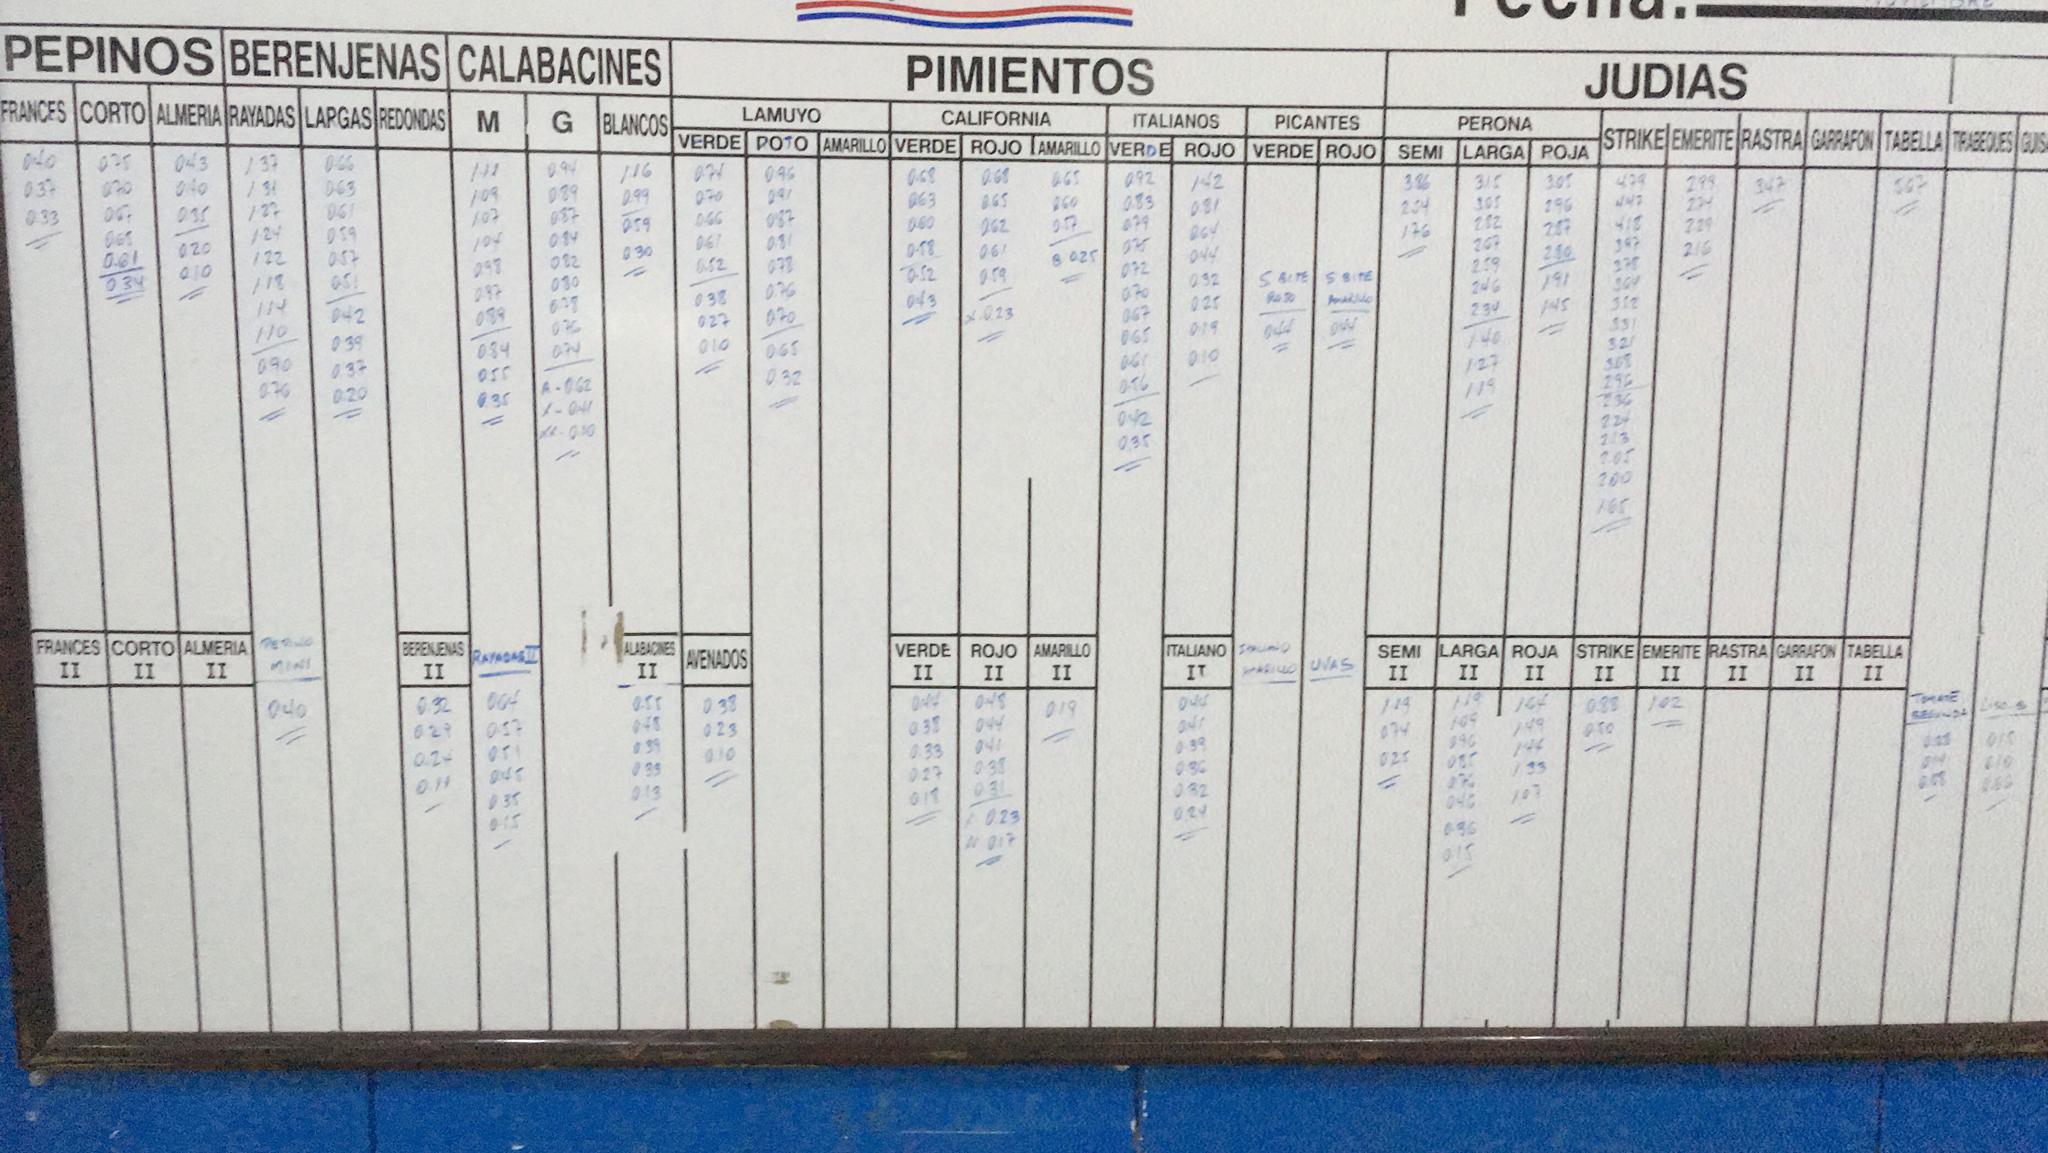 Fecha:
PEPINOS BERENJENAS CALABACINES PIMIENTOS JUDIAS
FRANCES CORTO ALMERIA RAYADAS LARGAS REDONDAS M G BLANCOS LAMUYO CALIFORNIA ITALIANOS PICANTES PERONA STRIKE EMERITE RASTRA GARRAFON TABELLA TIRABEQUES
VERDE ROJO AMARILLO VERDE ROJO AMARILLO VERDE ROJO VERDE ROJO SEMI LARGA ROJA
0.40 0.75 0.43 1.37 0.66 1.11 0.94 1.16 0.74 0.96 0.68 0.68 0.65 0.92 1.42 3.86 3.15 3.05 4.79 2.99 3.47 5.67
0.37 0.70 0.40 1.31 0.63 1.09 0.89 0.99 0.70 0.91 0.63 0.65 0.60 0.83 0.81 2.54 3.05 2.96 4.47 2.74
0.33 0.67 0.35 1.27 0.61 1.07 0.87 0.59 0.66 0.87 0.60 0.62 0.57 0.79 0.64 1.76 2.82 2.87 4.18 2.29
0.65 0.20 1.24 0.59 1.04 0.84 0.30 0.61 0.81 0.58 0.61 B 0.25 0.75 0.44 2.67 2.80 3.97 2.16
0.61 0.10 1.22 0.57 0.98 0.82 0.52 0.78 0.52 0.59 0.72 0.32 S BITE S BITE 2.59 1.91 3.78
0.34 1.18 0.51 0.97 0.80 0.38 0.76 0.43 X 0.23 0.70 0.25 ROJO AMARILLO 2.46 1.45 3.64
1.14 0.42 0.89 0.78 0.27 0.70 0.67 0.19 0.44 0.44 2.34 3.52
1.10 0.39 0.84 0.76 0.10 0.65 0.65 0.10 1.40 3.31
0.90 0.37 0.55 0.74 0.32 0.61 1.27 3.21
0.76 0.20 0.35 A-0.62 0.56 1.19 3.08
X-0.41 0.42 2.96
XX-0.10 0.35 2.36
2.24
2.13
2.05
2.00
1.65
FRANCES II CORTO II ALMERIA II PEPINO MINI BERENJENAS II RAYADAS II ALABACINES II AVENADOS VERDE II ROJO II AMARILLO II ITALIANO II ITALIANO AMARILLO UVAS SEMI II LARGA II ROJA II STRIKE II EMERITE II RASTRA II GARRAFON II TABELLA II
TOMATE SEGUNDA
0.40 0.32 0.64 0.55 0.38 0.44 0.48 0.19 0.44 1.19 1.19 1.64 0.88 1.02
0.29 0.57 0.48 0.23 0.38 0.44 0.41 0.74 1.09 1.49 0.50
0.24 0.51 0.39 0.10 0.33 0.41 0.39 0.25 0.96 1.44
0.45 0.33 0.27 0.38 0.36 0.85 1.33
0.35 0.13 0.18 0.31 0.32 0.76 1.07
0.15 0.23 0.24 0.46
0.17 0.36
0.15